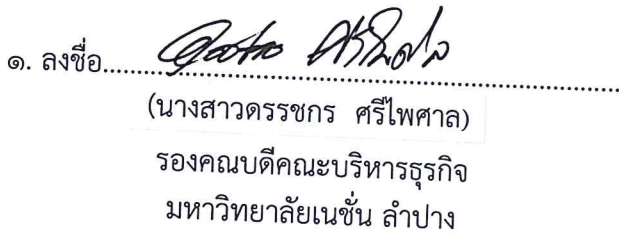 ๑. ลงชื่อ
(นางสาวดรรชกร ศรีไพศาล)
รองคณบดีคณะบริหารธุรกิจ
มหาวิทยาลัยเนชั่น ลำปาง